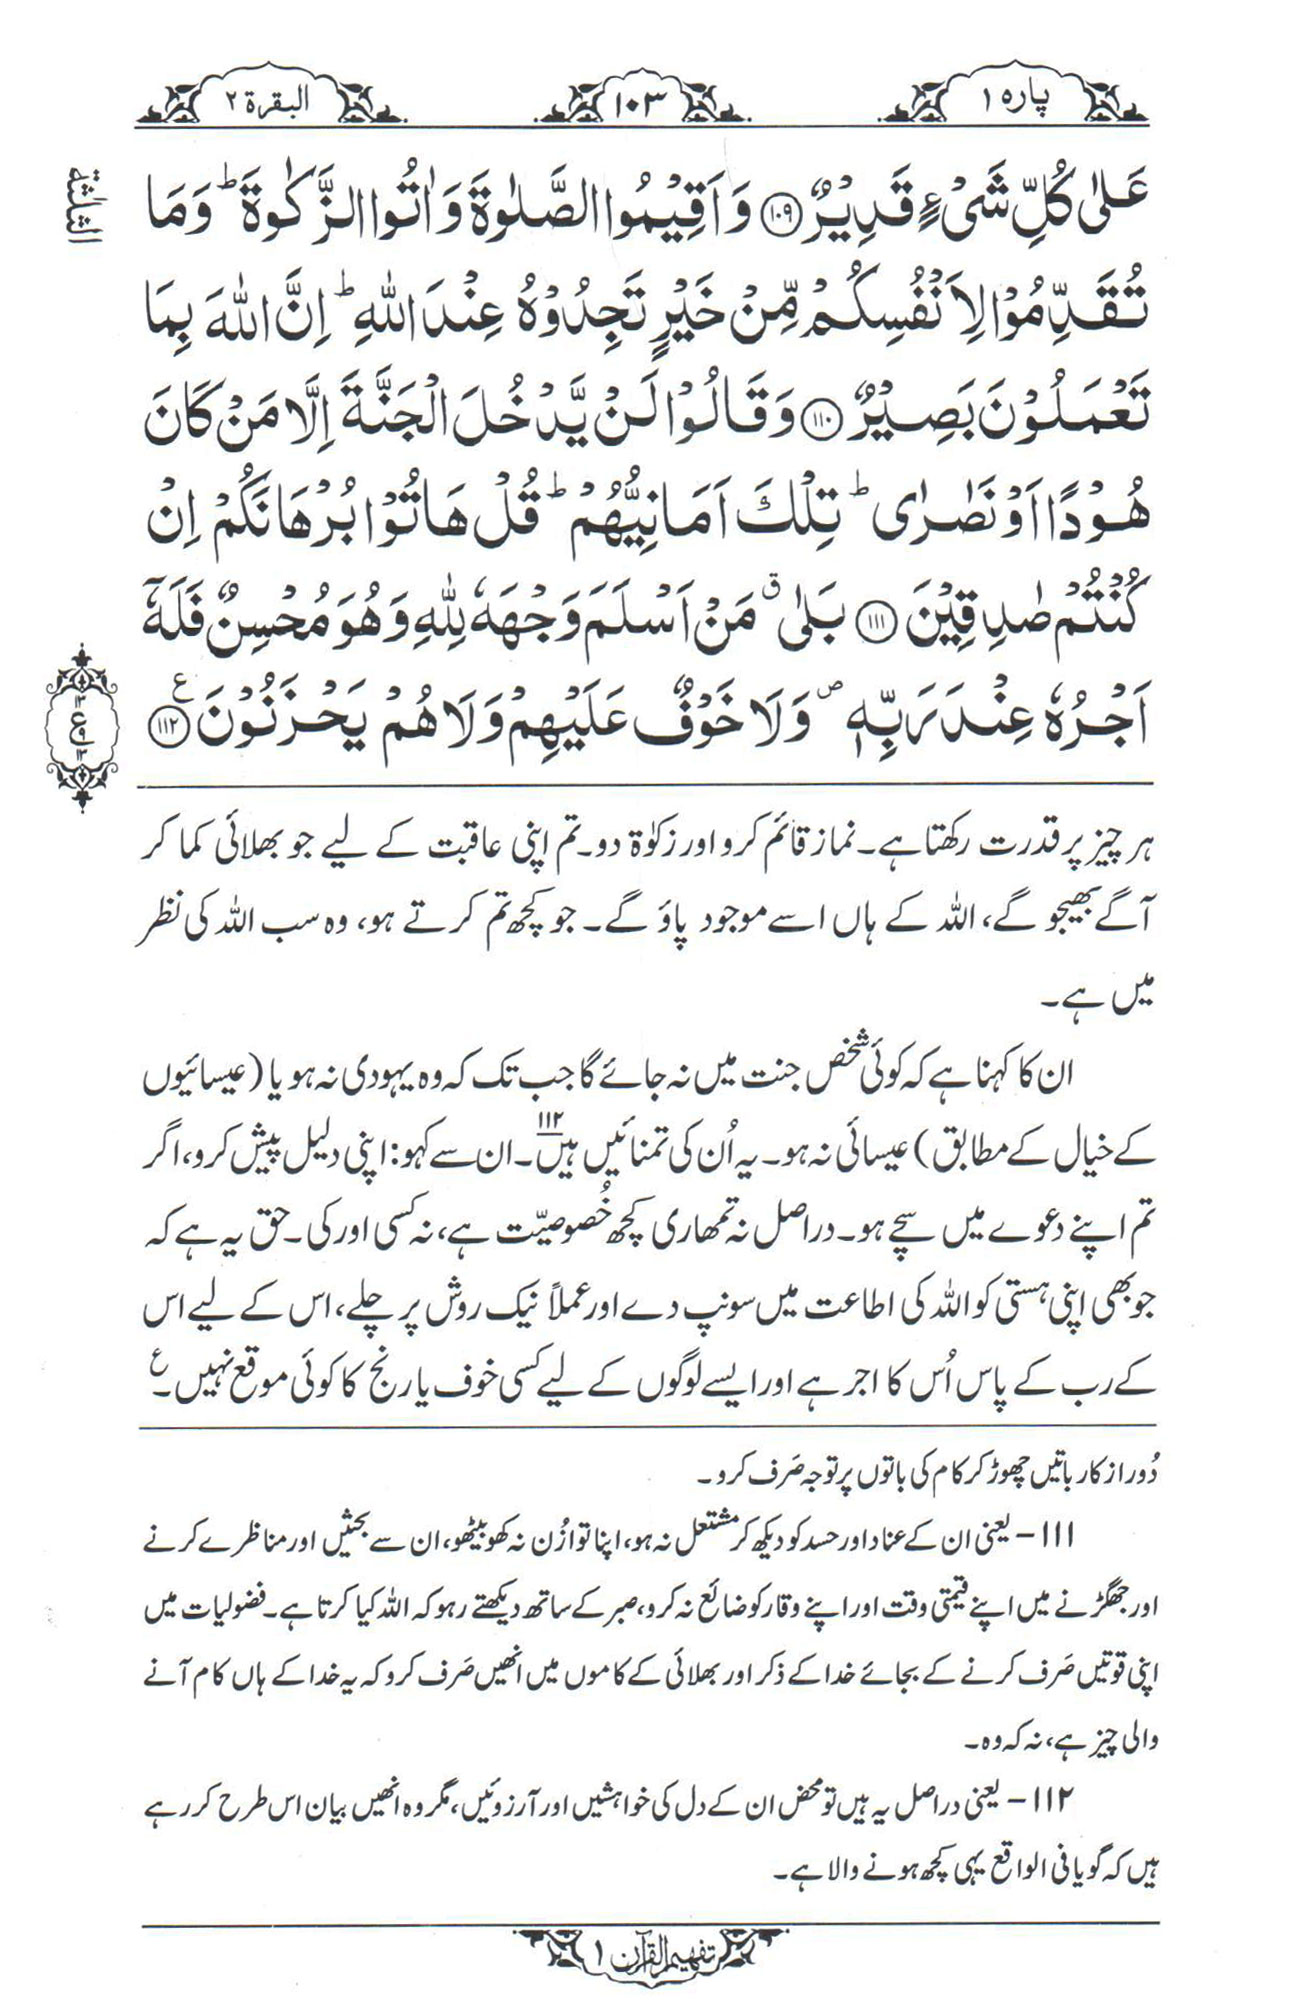 پارہ ۱
۱۰۳
البقرۃ ۲
عَلٰی كُلِّ شَیْءٍ قَدِیْرٌ ﴿۱۰۹﴾ وَاَقِیْمُوا الصَّلٰوةَ وَاٰتُوا الزَّكٰوةَ ؕ وَمَا
تُقَدِّمُوْا لِاَنْفُسِكُمْ مِّنْ خَیْرٍ تَجِدُوْهُ عِنْدَ اللّٰهِ ؕ اِنَّ اللّٰهَ بِمَا
تَعْمَلُوْنَ بَصِیْرٌ ﴿۱۱۰﴾ وَقَالُوْا لَنْ یَّدْخُلَ الْجَنَّةَ اِلَّا مَنْ كَانَ
هُوْدًا اَوْ نَصٰرٰی ؕ تِلْكَ اَمَانِیُّهُمْ ؕ قُلْ هَاتُوْا بُرْهَانَكُمْ اِنْ
كُنْتُمْ صٰدِقِیْنَ ﴿۱۱۱﴾ بَلٰی ۗ مَنْ اَسْلَمَ وَجْهَهٗ لِلّٰهِ وَهُوَ مُحْسِنٌ فَلَهٗۤ
اَجْرُهٗ عِنْدَ رَبِّهٖ ۪ وَلَا خَوْفٌ عَلَیْهِمْ وَلَا هُمْ یَحْزَنُوْنَ ﴿۱۱۲﴾ ع
ہر چیز پر قدرت رکھتا ہے۔ نماز قائم کرو اور زکوٰۃ دو۔ تم اپنی عاقبت کے لیے جو بھلائی کما کر
آگے بھیجو گے، اللہ کے ہاں اسے موجود پاؤ گے۔ جو کچھ تم کرتے ہو، وہ سب اللہ کی نظر
میں ہے۔
ان کا کہنا ہے کہ کوئی شخص جنت میں نہ جائے گا جب تک کہ وہ یہودی نہ ہو یا (عیسائیوں
کے خیال کے مطابق) عیسائی نہ ہو۔ یہ اُن کی تمنائیں ہیں۱۱۲۔ ان سے کہو: اپنی دلیل پیش کرو، اگر
تم اپنے دعوے میں سچے ہو۔ دراصل نہ تمھاری کچھ خُصوصیّت ہے، نہ کسی اور کی۔ حق یہ ہے کہ
جو بھی اپنی ہستی کو اللہ کی اطاعت میں سونپ دے اور عملاً نیک روش پر چلے، اس کے لیے اس
کے رب کے پاس اُس کا اجر ہے اور ایسے لوگوں کے لیے کسی خوف یا رنج کا کوئی موقع نہیں۔ع
دُور از کار باتیں چھوڑ کر کام کی باتوں پر توجہ صَرف کرو۔
۱۱۱ – یعنی ان کے عناد اور حسد کو دیکھ کر مشتعل نہ ہو، اپنا توازُن نہ کھو بیٹھو، ان سے بحثیں اور مناظرے کرنے
اور جھگڑنے میں اپنے قیمتی وقت اور اپنے وقار کو ضائع نہ کرو، صبر کے ساتھ دیکھتے رہو کہ اللہ کیا کرتا ہے۔ فضولیات میں
اپنی قوتیں صَرف کرنے کے بجائے خدا کے ذکر اور بھلائی کے کاموں میں انھیں صَرف کرو کہ یہ خدا کے ہاں کام آنے
والی چیز ہے، نہ کہ وہ۔
۱۱۲ – یعنی دراصل یہ ہیں تو محض ان کے دل کی خواہشیں اور آرزوئیں، مگر وہ انھیں بیان اس طرح کر رہے
ہیں کہ گویا فی الواقع یہی کچھ ہونے والا ہے۔
تفہیم القرآن ۱